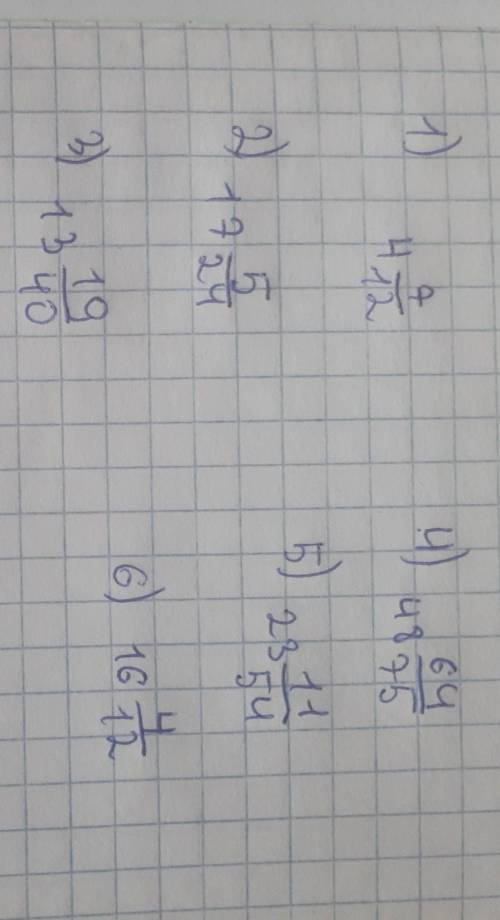 1) 4 9/12
2) 17 5/24
3) 13 19/40
4) 48 64/75
5) 23 11/54
6) 16 4/12